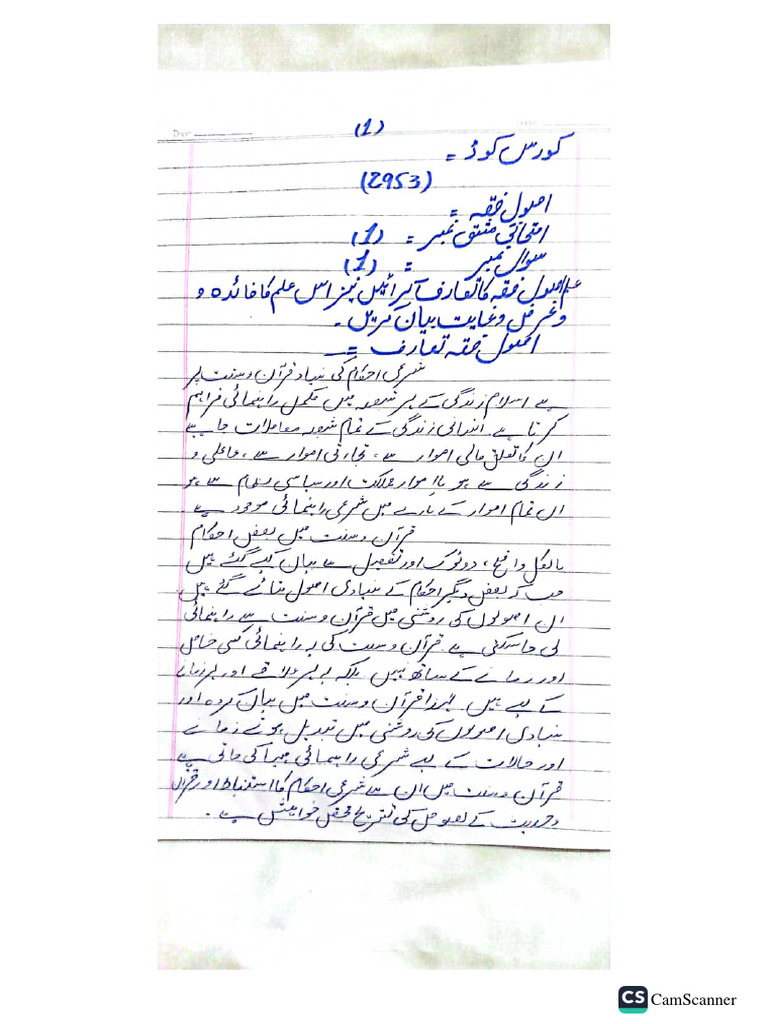 (1)
Date
کورس کوڈ =
(2953)
اصول فقہ =
امتحانی مشق نمبر = (1)
سوال نمبر = (1)
علم اصول فقہ کا تعارف کرائیں نیز اس علم کا فائدہ و
و غرض و غایت بیان کریں ۔
اصول فقہ تعارف =
شرعی احکام کی بنیاد قرآن و سنت پر
ہے اسلام زندگی کے ہر شعبہ میں مکمل راہنمائی فراہم
کرتا ہے۔ انسانی زندگی کے تمام شعبہ معاملات چاہے
ان کا تعلق مالی اموار سے، تجارتی اموار سے، عائلی و
زندگی سے ہو یا اموار مملکت اور سیاسی سے ہو
ان تمام اموار کے بارے میں شرعی راہنمائی موجود ہے۔
قرآن و سنت میں بعض احکام
بالکل واضح، دوٹوک اور تفصیل سے بیان کیے گئے ہیں
جب کہ بعض دیگر احکام کے بنیادی اصول بتائے گئے ہیں۔
ان اصولوں کی روشنی میں قرآن و سنت سے راہنمائی
لی جاسکتی ہے۔ قرآن و سنت کی یہ راہنمائی کسی خاص
اور زمانے کے ساتھ نہیں بلکہ ہر علاقے اور ہر زمانے
کے لیے ہیں۔ لہذا قرآن و سنت میں بیان کردہ اور
بنیادی اصولوں کی روشنی میں تبدیل ہوتے زمانے
اور حالات کے لیے شرعی راہنمائی مہیا کی جاتی ہے
قرآن و سنت میں ان سے شرعی احکام کا استنباط اور قرآن
و حدیث کے نصوص کی تشریح محض خواہش ہے۔
CS CamScanner